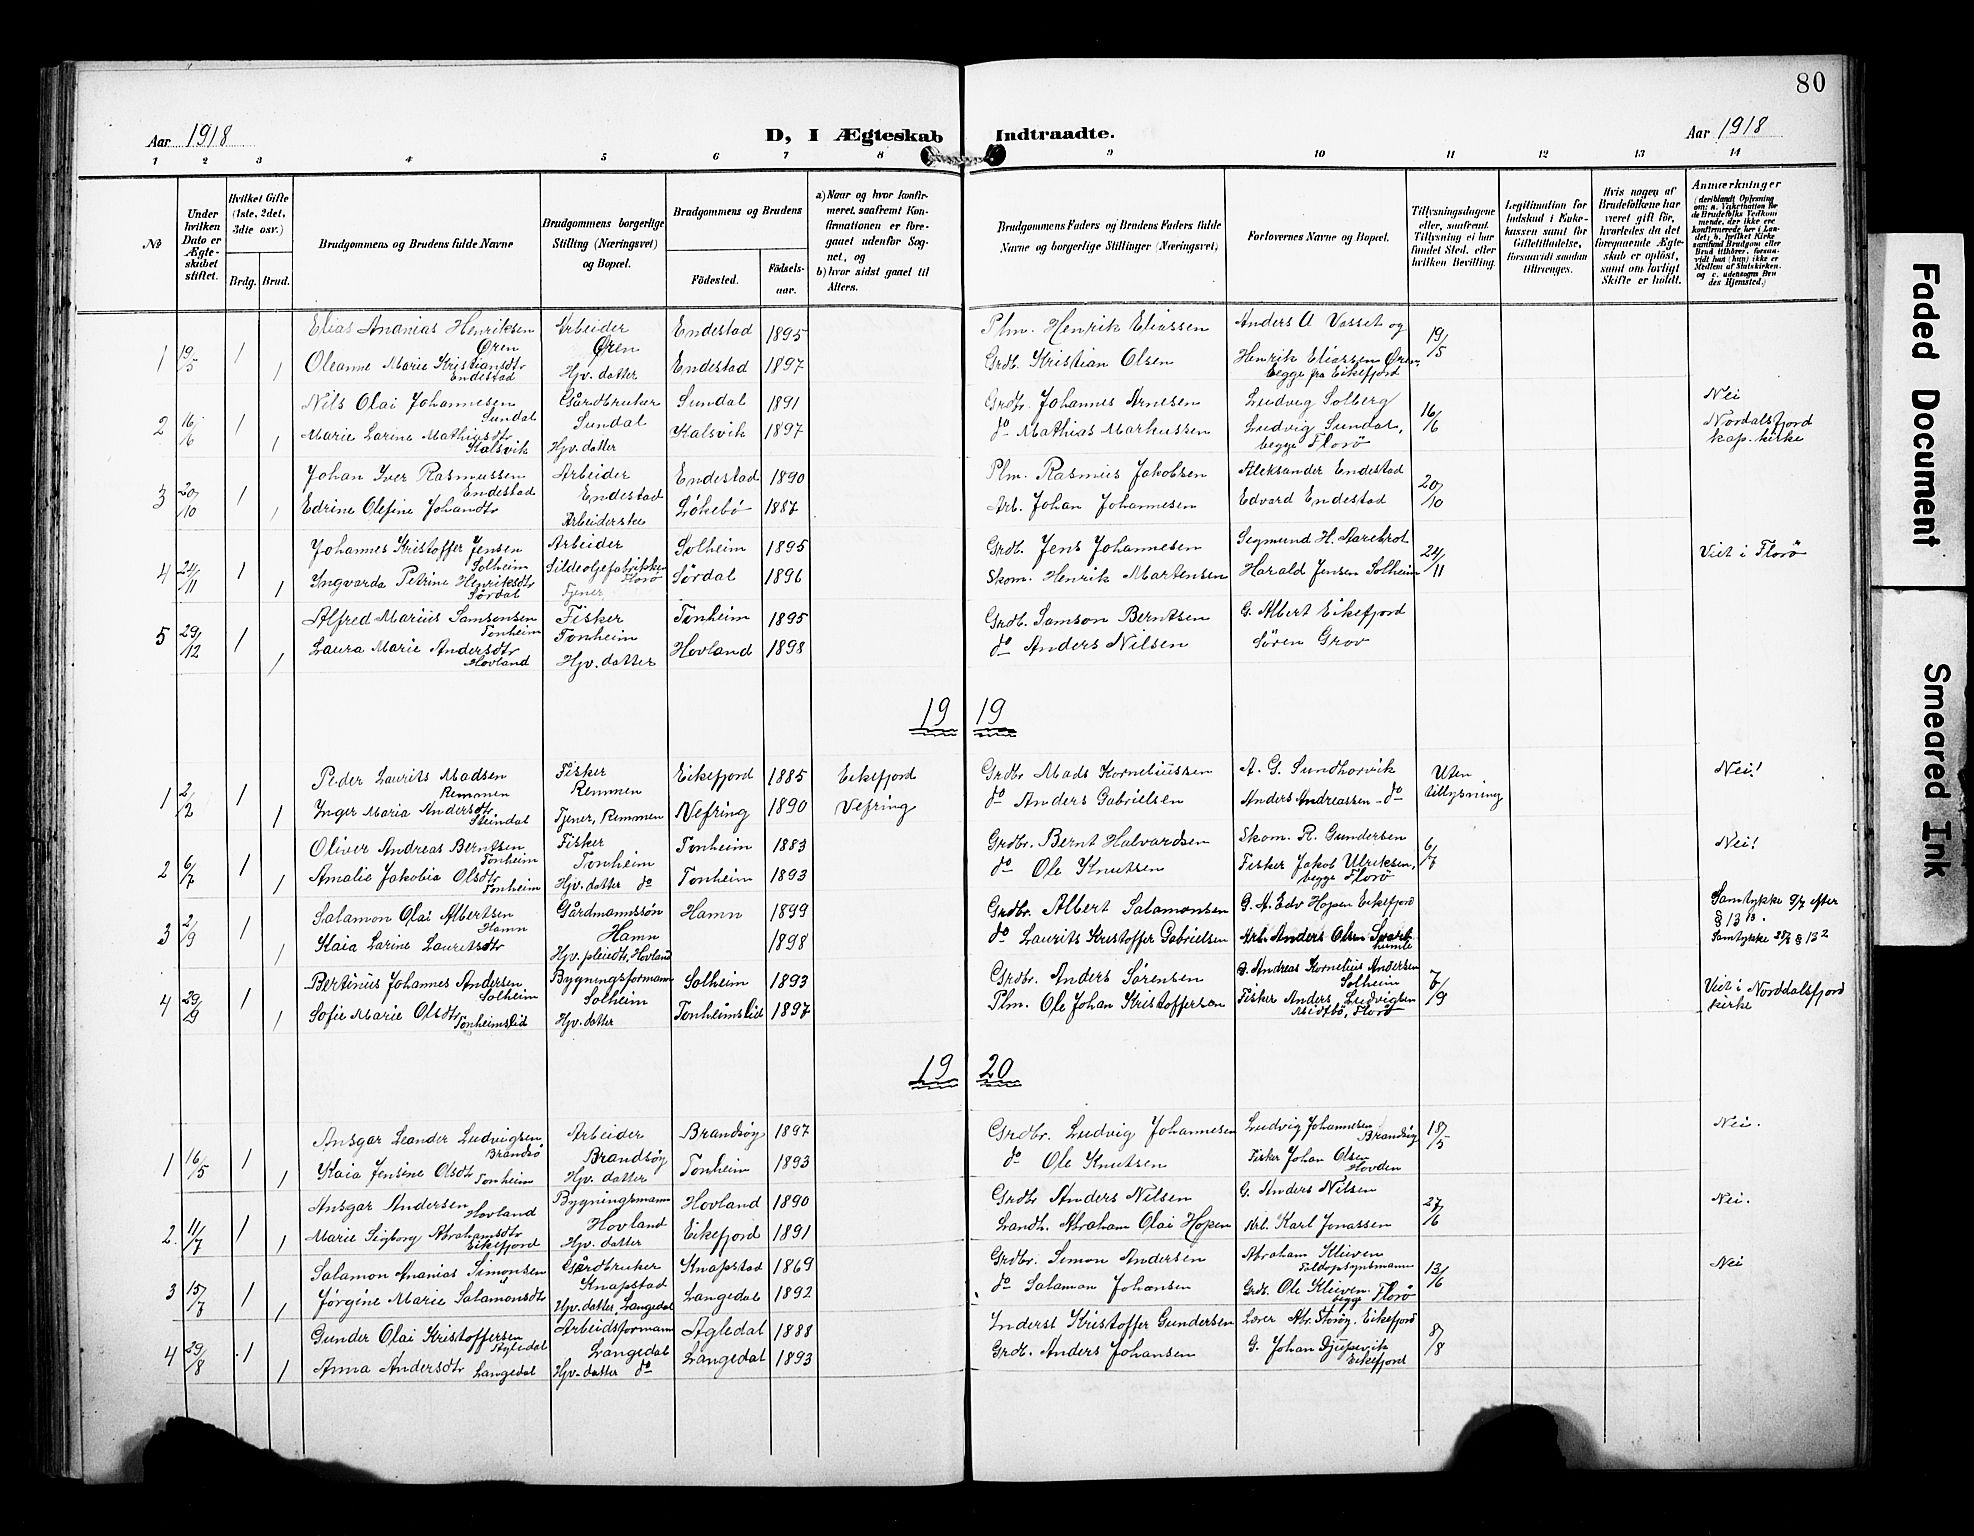 80
Aar 1918
D, I Ægteskab Indtraadte.
Aar 1918
1 2 3 4 5 6 7 8 9 10 11 12 13 14
No
Under hvilken Dato er Ægteskabet stiftet.
Hvilket Gifte (1ste, 2det, 3die osv.)
Brdg. Brud.
Brudgommens og Brudens fulde Navne
Brudgommens borgerlige Stilling (Næringsvei) og Bopæl.
Brudgommens og Brudens
Födested.
Födselsaar.
a) Naar og hvor konfirmeret, saafremt Konfirmationen er foregaaet udenfor Sognet, og
b) hvor sidst gaaet til Alters.
Brudgommens Faders og Brudens Faders fulde Navne og borgerlige Stillinger (Næringsvei)
Forlovernes Navne og Bopæl.
Tillysningsdagene eller, saafremt Tillysning ei har fundet Sted, efter hvilken Bevilling.
Legitimation for Indskud i Enkekassen samt for Giftetilladelse, forsaavidt saadan tiltrænges.
Hvis nogen af Brudefolkene har været gift för, hvorledes da det foregaaende Ægteskab er oplöst, samt om lovligt Skifte er holdt.
Anmærkninger
(deriblandt Oplysning om: a. Vakcination for de Brudefolks Vedkommende, der ikke ere konfirmerede her i Landet; b. hvilket Kirkesamfund Brudgom eller Brud tilhörer, forsaavidt han (hun) ikke er Medlem af Statskirken, og c. udensogns Brudes Hjemsted.)
1 19/5 1 Elias Ananias Henriksen Øren Arbeider Øren Endestad 1895 Plm. Henrik Eliassen Anders A Vasset og 19/5
1 Oleanne Marie Kristiansdtr Endestad Hjv. datter Endestad 1897 Grdb. Kristian Olsen Henrik Eliassen Øren, begge fra Eikefjord
2 16/6 1 Nils Olai Johannesen Sundal Gårdbruker Sundal Sundal 1891 Grdb. Johannes Arnesen Ludvig Solberg 16/6 Nei
1 Marie Larine Mathiasdtr Kalsvik Hjv. datter Kalsvik 1897 do Mathias Markussen Ludvig Sundal, begge Florø Nordalsfjord kap. kirke
3 20/10 1 Johan Iver Rasmussen Endestad Arbeider Endestad Endestad 1890 Plm. Rasmus Jakobsen Aleksander Endestad 20/10
1 Edrine Olefine Johandtr Arbeiderske Løkebø 1887 Arb. Johan Johannesen Edvard Endestad
4 24/11 1 Johannes Kristoffer Jensen Solheim Arbeider Sildeoljefabrikken Florø Solheim 1895 Grdb. Jens Johannesen Segmund H. Aarebrot 24/11 Viet i Florø
1 Ingvarda Petrine Henriksdtr Sørdal Tjener Sørdal 1896 Skom. Henrik Martensen Harald Jensen Solheim
5 29/12 1 Alfred Marius Samsonsen Tonheim Fisker Tonheim Tonheim 1895 Grdb. Samson Berntsen G. Albert Eikefjord
1 Laura Marie Andersdtr Hovland Hjv. datter Hovland 1898 do Anders Nilsen Søren Grov
19 19
1 2/2 1 Peder Laurits Madsen Remmen Fisker Remmen Eikefjord 1885 Eikefjord Grdbr Mads Korneliussen A. G. Sundhorvik Uten tillysning Nei!
1 Inger Maria Andersdtr Steindal Tjener, Remmen Vefring 1890 Vefring do Anders Gabrielsen Anders Andreassen - do
2 6/7 1 Oliver Andreas Berntsen Tonheim Fisker Tonheim Tonheim 1883 Grdbr. Bernt Halvardsen Skom. R. Gundersen 6/7 Nei!
1 Amalie Jakobia Olsdtr Tonheim Hjv. datter do Tonheim 1893 do Ole Knutsen Fisker Jakob Ulriksen, begge Florø
3 2/9 1 Salamon Olai Albertsen Hamn Gårdmannssøn Hamn Hamn 1899 Grdbr. Albert Salamonsen G. A. Edv Hopen Eikefjord Samtykke 9/7 efter § 13
1 Kaia Larine Lauritsdtr Hjv. pleiedtr, Hovland 1898 do Laurits Kristoffer Gabrielsen Arb. Anders Olsen Samtykke § 13 2
4 29/9 1 Bertinius Johannes Andersen Solheim Bygningsformann Solheim Solheim 1893 Grdbr. Anders Sørensen G. Andreas Kornelius Andersen Solheim Viet i Norddalsfjord kirke
1 Sofie Marie Olsdtr Tonheimslid Hjv. datter Tonheimslid 1897 Plm. Ole Johan Kristoffersen Fisker Anders Ludvigsen Florø
19 20
1 16/5 1 Ansgar Leander Ludvigsen Brandsø Arbeider Brandsøy Brandsøy 1897 Grdbr. Ludvig Johannesen Ludvig Johannesen Brandsøy 18/5 Nei.
1 Kaia Jensine Olsdtr Tonheim Hjv. datter Tonheim 1893 do Ole Knutsen Fisker Johan Olsen Hovden
2. 11/7 1 Ansgar Andersen Hovland Bygningsmann Hovland Hovland 1890 Grdbr Anders Nilsen G. Anders Nilsen 27/6 Nei.
1 Marie Sigborg Abrahamsdtr Eikefjord Hjv. datter Eikefjord 1891 Landh. Abraham Olai Hopen Arb. Karl Jonassen
3 15/7 1 Salamon Ananias Simonsen Gårdbruker Knapstad Knapstad 1869 Grdbr. Simon Andersen Abraham Kleiven Toldopsynsmann 13/6 Nei
1 Jørgine Marie Salamonsdtr Hjv. datter, Langedal Langedal 1892 do Salamon Johansen Grdb. Ole Kleiven. begge Florø
4 29/8 1 Gunder Olai Kristoffersen Agledal Arbeidsformann Langedal Agledal 1888 Inderst Kristoffer Gundersen Lærer Abr. Storøy, Eikefjord 8/8
1 Anna Andersdtr Langedal Hjv. datter do Langedal 1893 Grdb. Anders Johansen G. Johan Djupevik Eikefjord
Faded Document
Smeared Ink